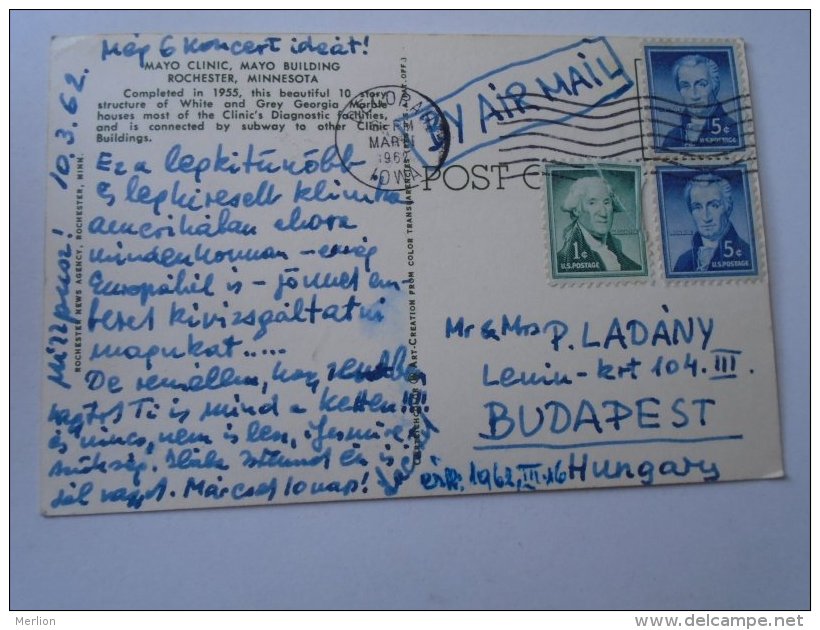 Még 6 koncert ideát!
MAYO CLINIC, MAYO BUILDING
ROCHESTER, MINNESOTA
Completed in 1955, this beautiful 10 story
structure of White and Grey Georgia Marble
houses most of the Clinic's Diagnostic facilities,
and is connected by subway to other Clinic
Buildings.
10.3.62.
ROCHESTER NEWS AGENCY, ROCHESTER, MINN.
Ez a legkitűnőbb
és legkeresettebb klinika
amerikában ahova
mindenhonnan - még
Európából is - jönnek em-
berek kivizsgáltatni
magukat.....
De remélem, hogy
Ti is mind a ketten!!!
és nincs, nem is lesz, ilyesmire
szükség. Hála Istennek én is
jól vagyok. Már csak 10 nap!
ART-CREATION FROM COLOR TRANSPARENCIES
MAR 11
1962
IOWA
BY AIR MAIL
POST C
5¢
U.S. POSTAGE
1¢
U.S. POSTAGE
5¢
U.S. POSTAGE
Mr & Mrs P. LADÁNY
Lenin-krt 104. III.
BUDAPEST
Hungary
érk. 1962. III. 16
Merlion
www.delcampe.net